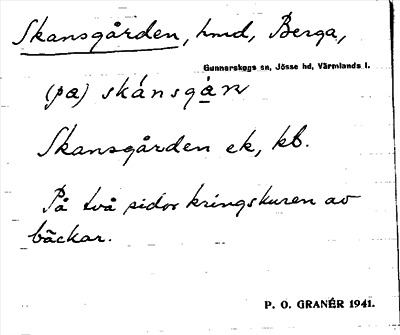 Skansgården, hmd, Berga,
Gunnarskogs sn, Jösse hd, Värmlands l.
(pa) skánsgán
Skansgården ek, kb.
På två sidor kringskuren av
bäckar.
P. O. GRANÉR 1941.